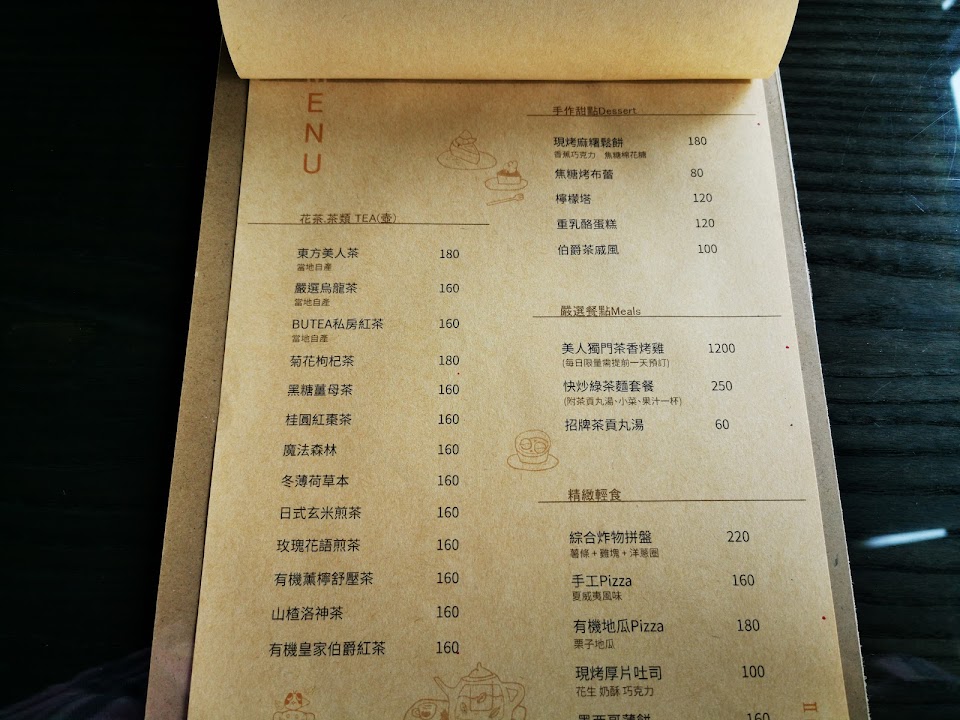 ENU
花茶.茶類 TEA(壺)
東方美人茶 180
當地自產
嚴選烏龍茶 160
當地自產
BUTEA私房紅茶 160
當地自產
菊花枸杞茶 180
黑糖薑母茶 160
桂圓紅棗茶 160
魔法森林 160
冬薄荷草本 160
日式玄米煎茶 160
玫瑰花語煎茶 160
有機薰檸舒壓茶 160
山楂洛神茶 160
有機皇家伯爵紅茶 160
手作甜點Dessert
現烤麻糬鬆餅 180
香蕉巧克力 焦糖棉花糖
焦糖烤布蕾 80
檸檬塔 120
重乳酪蛋糕 120
伯爵茶戚風 100
嚴選餐點Meals
美人獨門茶香烤雞 1200
(每日限量需提前一天預訂)
快炒綠茶麵套餐 250
(附茶貢丸湯、小菜、果汁一杯)
招牌茶貢丸湯 60
精緻輕食
綜合炸物拼盤 220
薯條+雞塊+洋蔥圈
手工Pizza 160
夏威夷風味
有機地瓜Pizza 180
栗子地瓜
現烤厚片吐司 100
花生 奶酥 巧克力
墨西哥薄餅 160